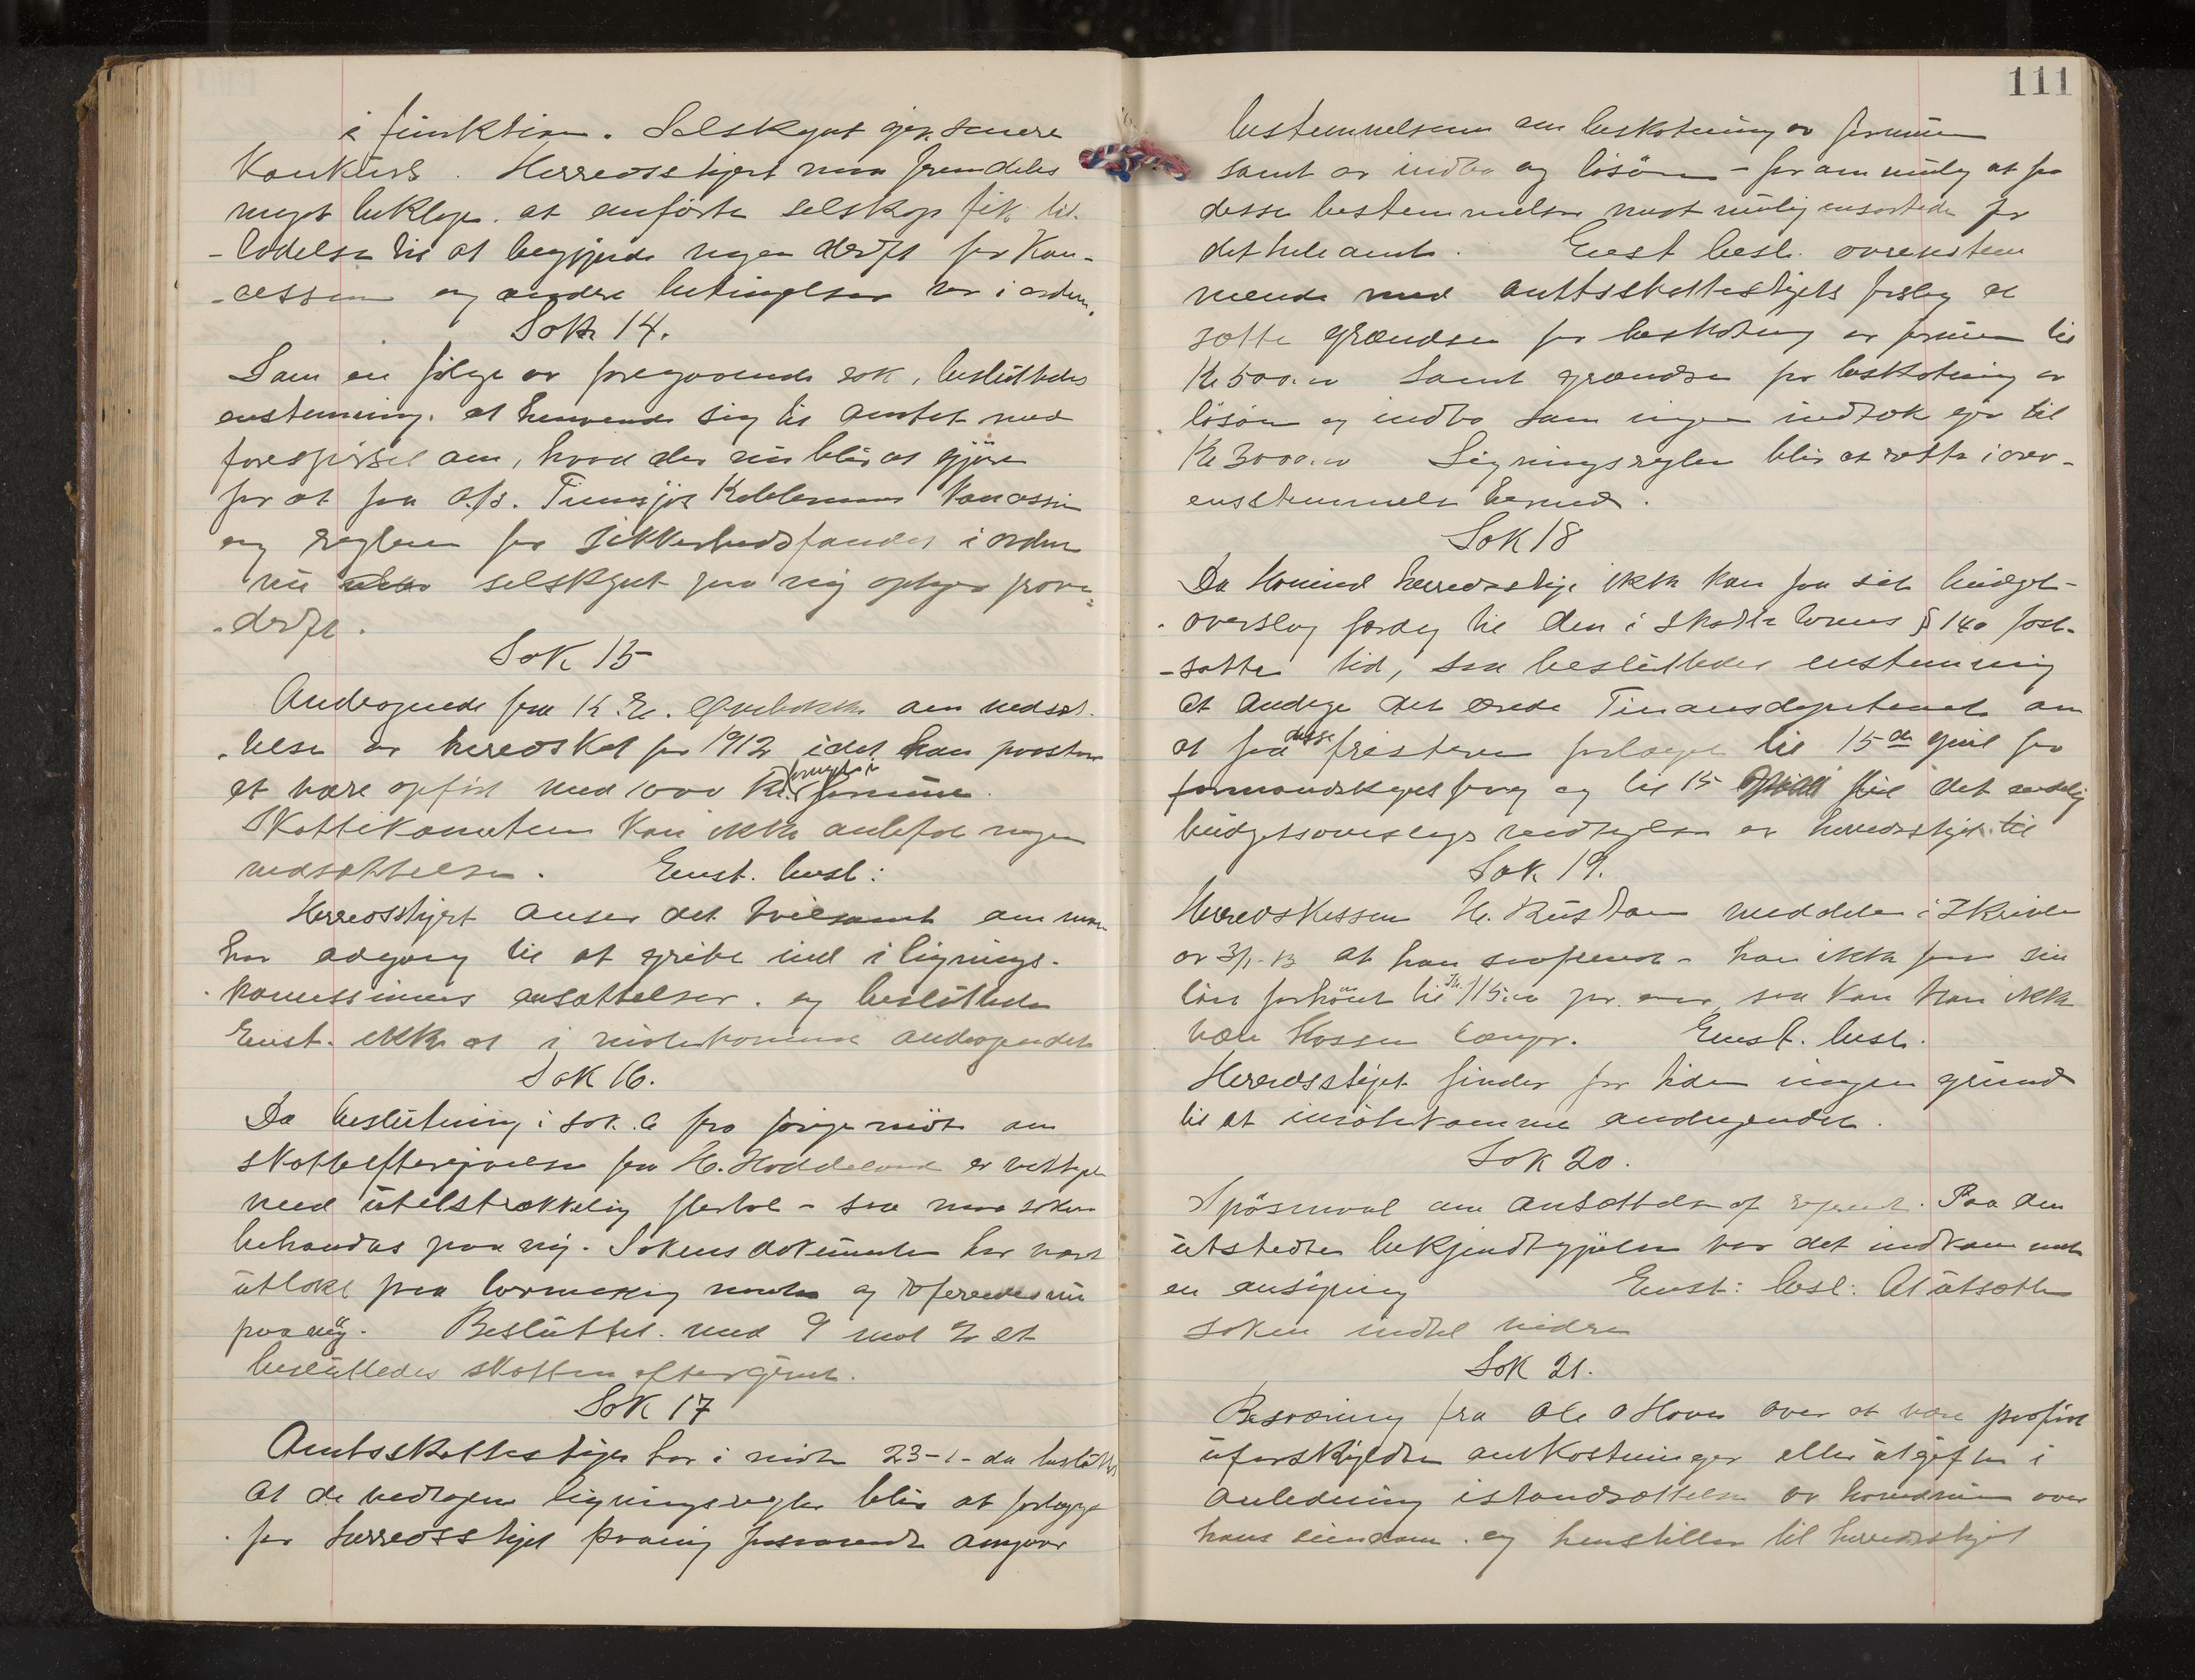 i funktion. Selskapet gik senere
Konkurs. Herredsstyret maa fremdeles
meget beklage. at anførte selskap fik til-
-ladelse til at begynde nogen drift før Kon-
-cessin og andre betingelser var i orden.
Sak 14.
Som en følge av foregaaende sak, besluttedes
enstemmig. at henvende sig til amtet med
forespørsel om, hvad der nu blir at gjøre
for at faa A/S. Kobberverks Koncession
og reglene for sikkerhedsfondet i orden
nu selskapet paa ny optager prøve-
-drift.
Sak 15
Andragende fra K. E. om nedsæt-
-telse av herredskat for 1912 idet han paastaar
at være opført med 1000 Kr. formeget i formue.
Skattekomiteen kan ikke anbefale nogen
nedsættelse. Enst. besl:
Herredsstyret anser det tvilsomt om man
har adgang til at gribe ind i lignings-
-komissionens ansættelser. og besluttedes
Enst. ikke at imøtekomme andragendet
Sak 16.
Da beslutning i sak. 6 fra forrige møte om
skatteeftergivelse fra H. Hoddeland er vedtaget
med utilstrækkelig flertal - saa maa saken
behandles paa ny. Sakens dokumenter har været
utlagt paa lovmessig maate og refereredes nu
paa ny. Besluttet. med 9 mot 2 at
besluttedes skatten eftergivet.
Sak 17
Amtsskattestyret har i møte 23-1- da besluttet
at de vedtagne ligningsregler blir at forlægge
for herredsstyret paany forsaavidt angaar
111
bestemmelserne om beskatning av formue
samt av indbo og løsøre - for om mulig at faa
disse bestemmelser mest mulig ensartede for
det hele amt. Enst besl. overenstem
mende med amtsskattestyrets forslag at
sætte grændsen for beskatning av formue til
Kr 500.00 samt grændsen for beskatning av
løsøre og indbo som ingen indtæk gir til
Kr 3000.00 Ligningsreglene blir at rette i over-
ensstemmelse hermed.
Sak 18
Da herredsstyre ikke kan faa sit budget-
overslag færdig til den i skattelovens § 140 fast-
-satte tid, saa besluttedes enstemmig
at andrage det ærede Finansdepartement om
at faa disse fristerne forlænget til 15de april for
formandskapets forslag og til 15 for det endelig
budgetsoverslags vedtagelse av herredsstyret. til
Sak 19.
Herredskasser H. Rustan meddeler i skrivelse
av 3/1-13 at han saafremt - han ikke faar sin
løn forhøiet til Kr. 115.00 pr. , saa kan han ikke
være kasser længer. Enst. besl.
Herredsstyret finder for tiden ingen grund
til at imøtekomme andragendet.
Sak 20.
Spørsmaal om ansættelse af . Paa den
utstedte bekjendtgjørelse var det indkommet
en ansøgning Enst: besl: At utsætte
saken indtil videre
Sak 21.
Besværing fra Ole O Hovin over at være paaført
uforskyldte omkostninger eller utgifter i
anledning istandsættelse av over
hans eiendom. og henstiller til herredsstyret